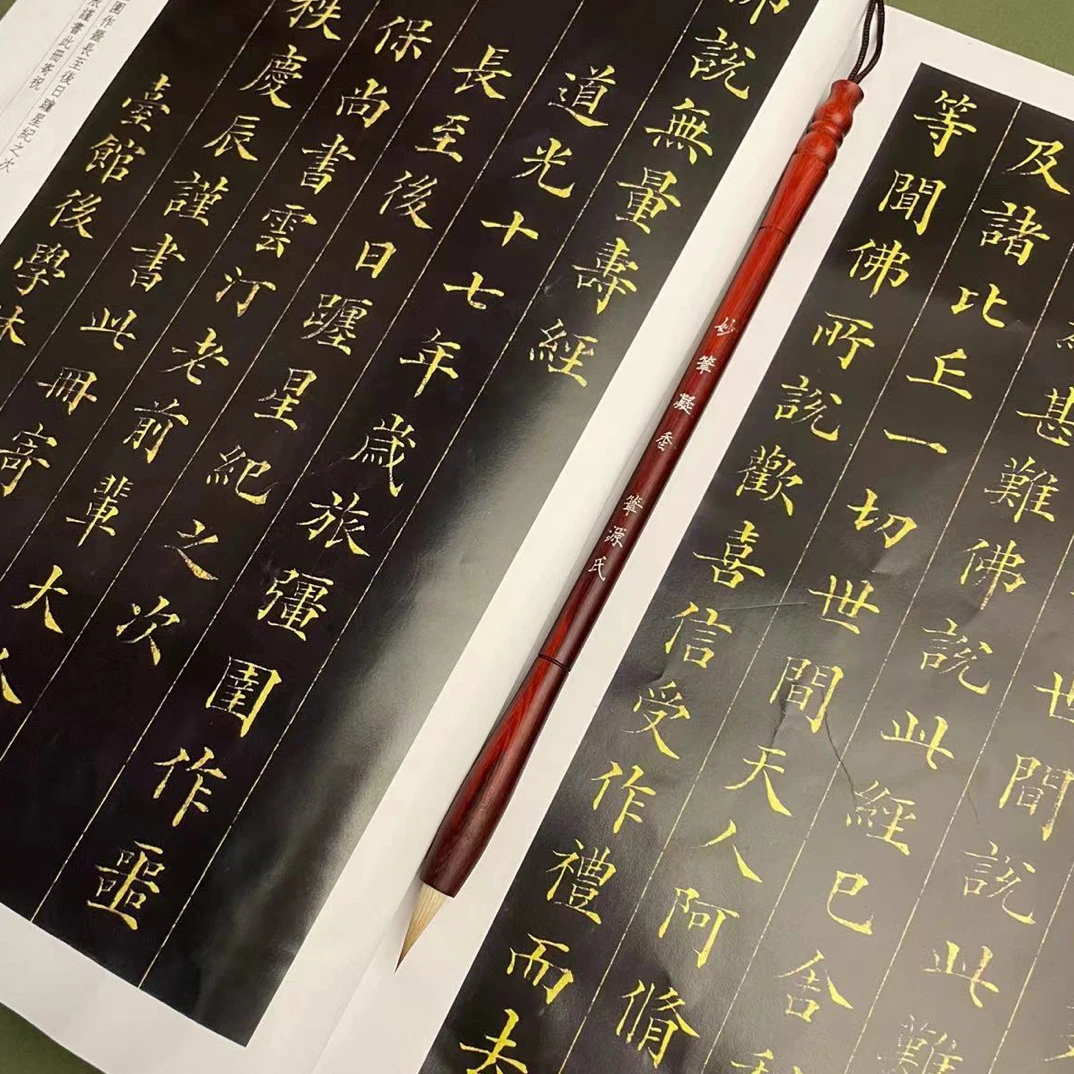 世間說此難
為甚難佛說此經已舍利
及諸比丘一切世間天人阿脩
等聞佛所說歡喜信受作禮而去
佛說無量壽經
道光十七年歲旅彊圉作噩
長至後日躔星紀之次
保尚書雲汀老前輩大人
秩慶辰謹書此冊寄
臺館後學林
圉作噩長至後日躔星紀之次
辰謹書此冊寄祝
妙筆凝香 筆源氏